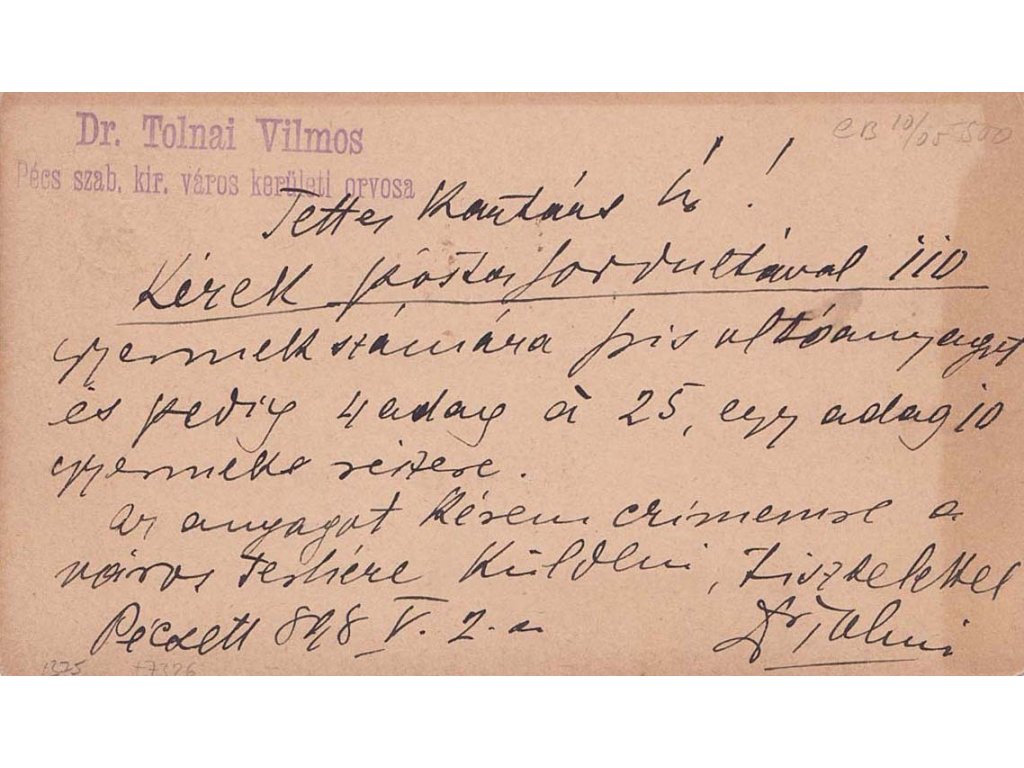 Dr. Tolnai Vilmos
Pécs szab. kir. város kerületi orvosa
CB 10/05 500
Kartárs Úr!
Kérek posta fordultával 110
gyermek számára fris oltóanyagot
és pedig 4 adag à 25, egy adag 10
gyermek részére.
az anyagot kérem czimemre a
város terhére küldeni, Tisztelettel
Pécsett 898 V. 2.án Dr Tolnai
1375 +7326